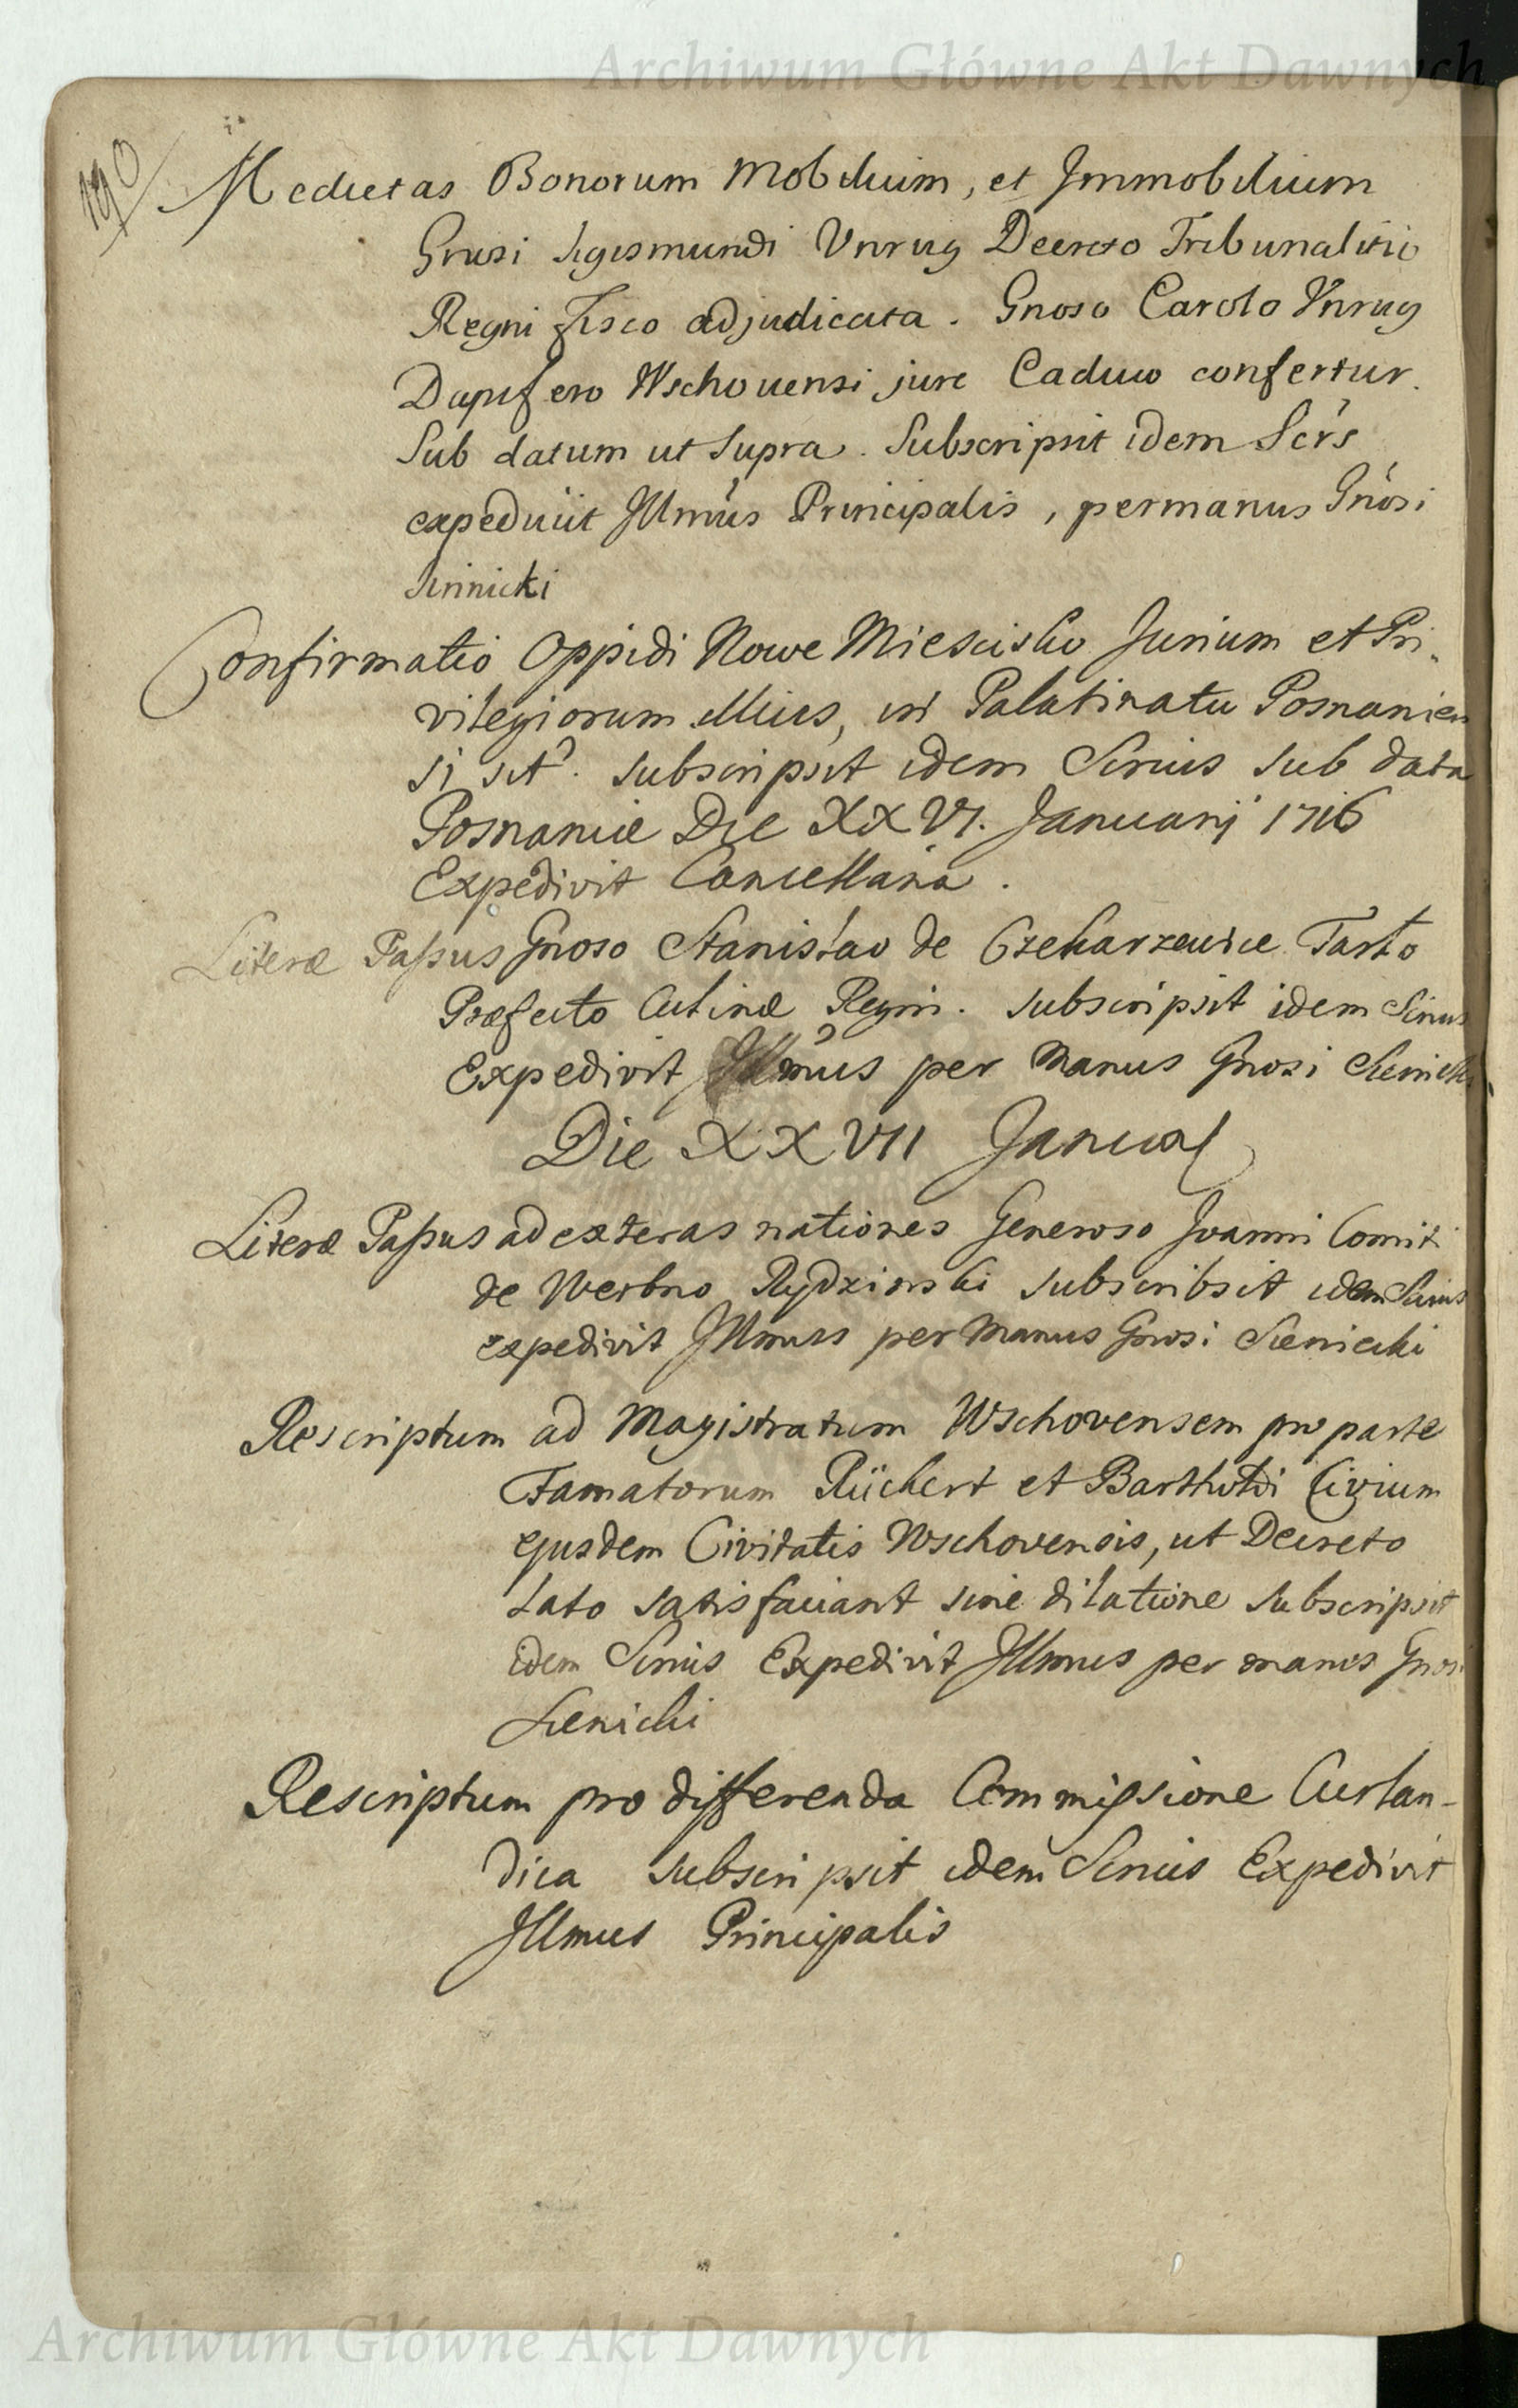 Archiwum Główne Akt Dawnych
190
Medietas Bonorum Mobilium, et Immobilium
Gnosi Sigismundi Unrug Decreto Tribunalitio
Regni Fisco adjudicata. Gnoso Carolo Unrug
Dapifero Wschovensi jure Caduco confertur.
Sub datum ut supra. Subscripsit idem Scrs
expedivit Illmus Principalis, per manus Gnosi
Sienicki
Confirmatio Oppidi Nowe Miescisko Jurium et Pri-
vilegiorum illius, in Palatinatu Posnanien
si sit. subscripsit idem Scrius sub data
Posnaniæ Die XXVI. Januarij 1716
Expedivit Cancellaria.
Literæ Passus Gnoso Stanislao de Czekarzewice Tarło
Præfecto Culinæ Regni. subscripsit idem Scrius
Expedivit Illmus per Manus Gnosi Sienicki
Die XXVII Januar
Literæ Passus ad exteras nationes Generoso Joanni Comiti
de Werbno Rydzinski subscribsit idem Scrius
expedivit Illmus per Manus Gnosi Sienicki
Rescriptum ad Magistratum Wschovensem pro parte
Famatorum Rückert et Bartholdi Civium
ejusdem Civitatis Wschovensis, ut Decreto
lato satisfaciant sine dilatione subscripsit
idem Scrius Expedivit Illmus per manus Gnosi
Sienicki
Rescriptum pro differenda Commissione Curlan-
dica subscripsit idem Scrius Expedivit
Illmus Principalis
Archiwum Główne Akt Dawnych